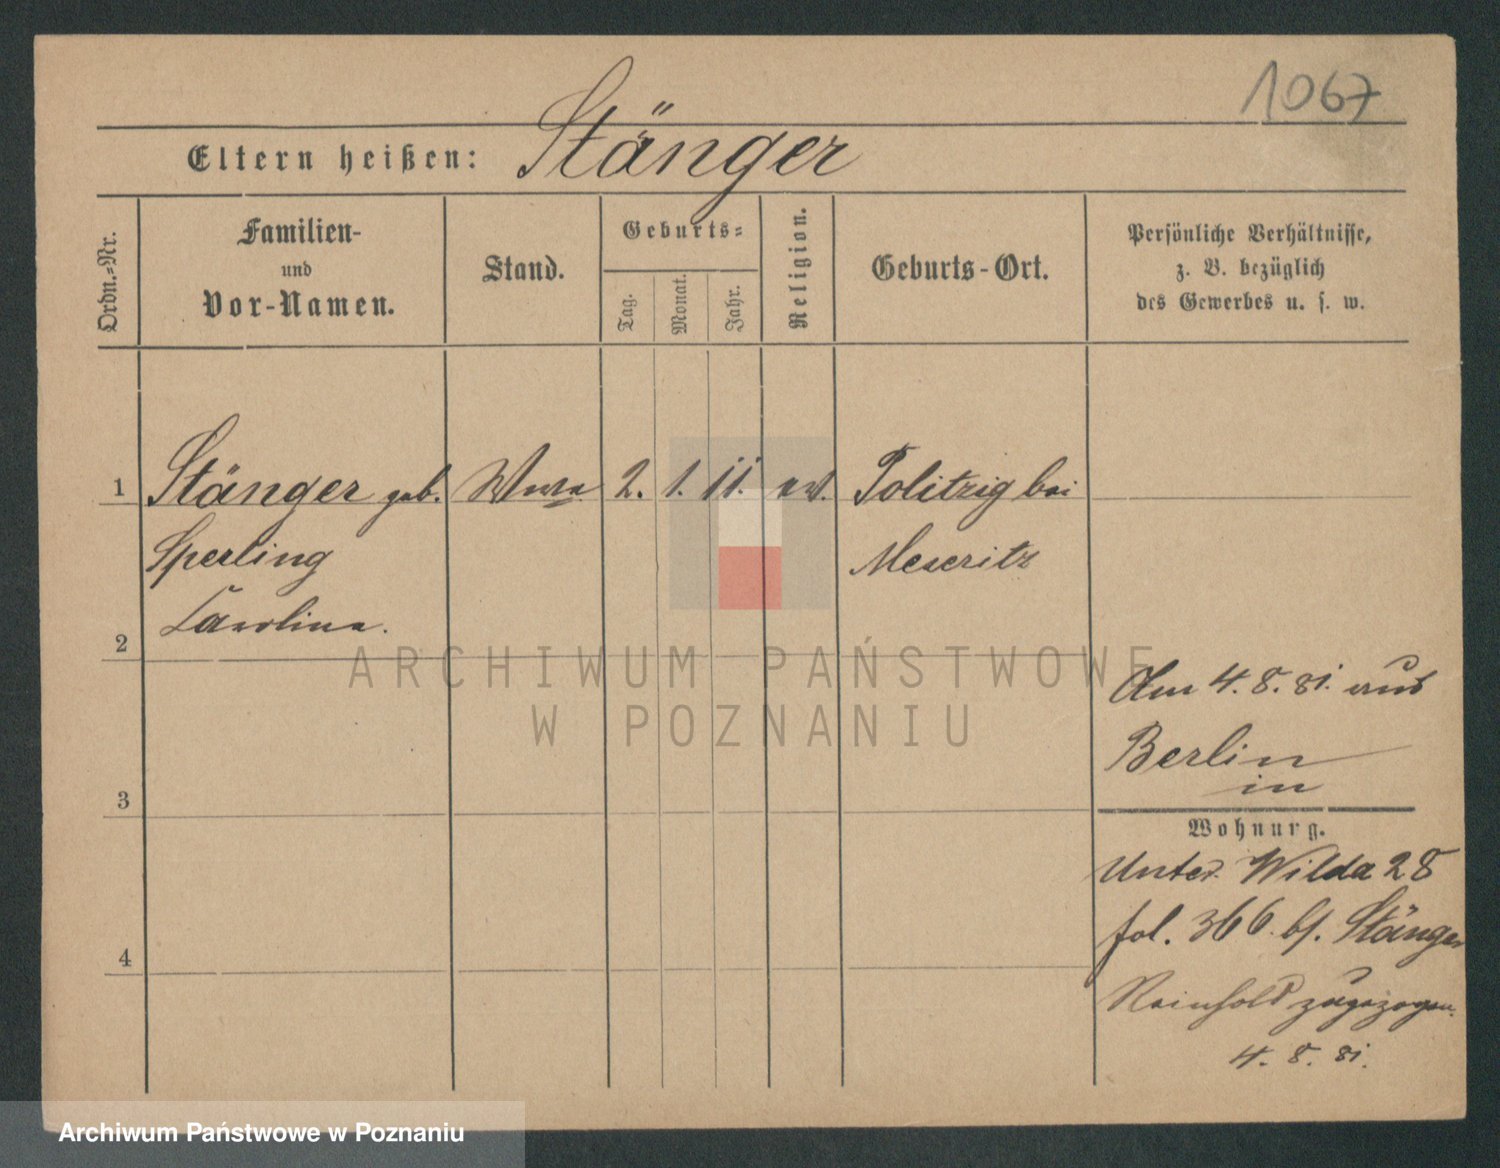 1067
Eltern heißen: Stänger
Ordn.=Nr.
Familien-
und
Vor-Namen.
Stand.
Geburts=
Tag.
Monat.
Jahr.
Religion.
Geburts-Ort.
Persönliche Verhältnisse,
z. B. bezüglich
des Gewerbes u. s. w.
1 Stänger geb. Wwe 2. 1. 11. ev. Politzig bei
Sperling Meseritz
Carolina.
2
ARCHIWUM PAŃSTWOWE
W POZNANIU
Am 4. 8. 81. aus
Berlin
in
3
Wohnung.
Unter Wilda 28
fol. 366. bf. Stänger
4
Reinhold zugezogen.
4. 8. 81.
Archiwum Państwowe w Poznaniu